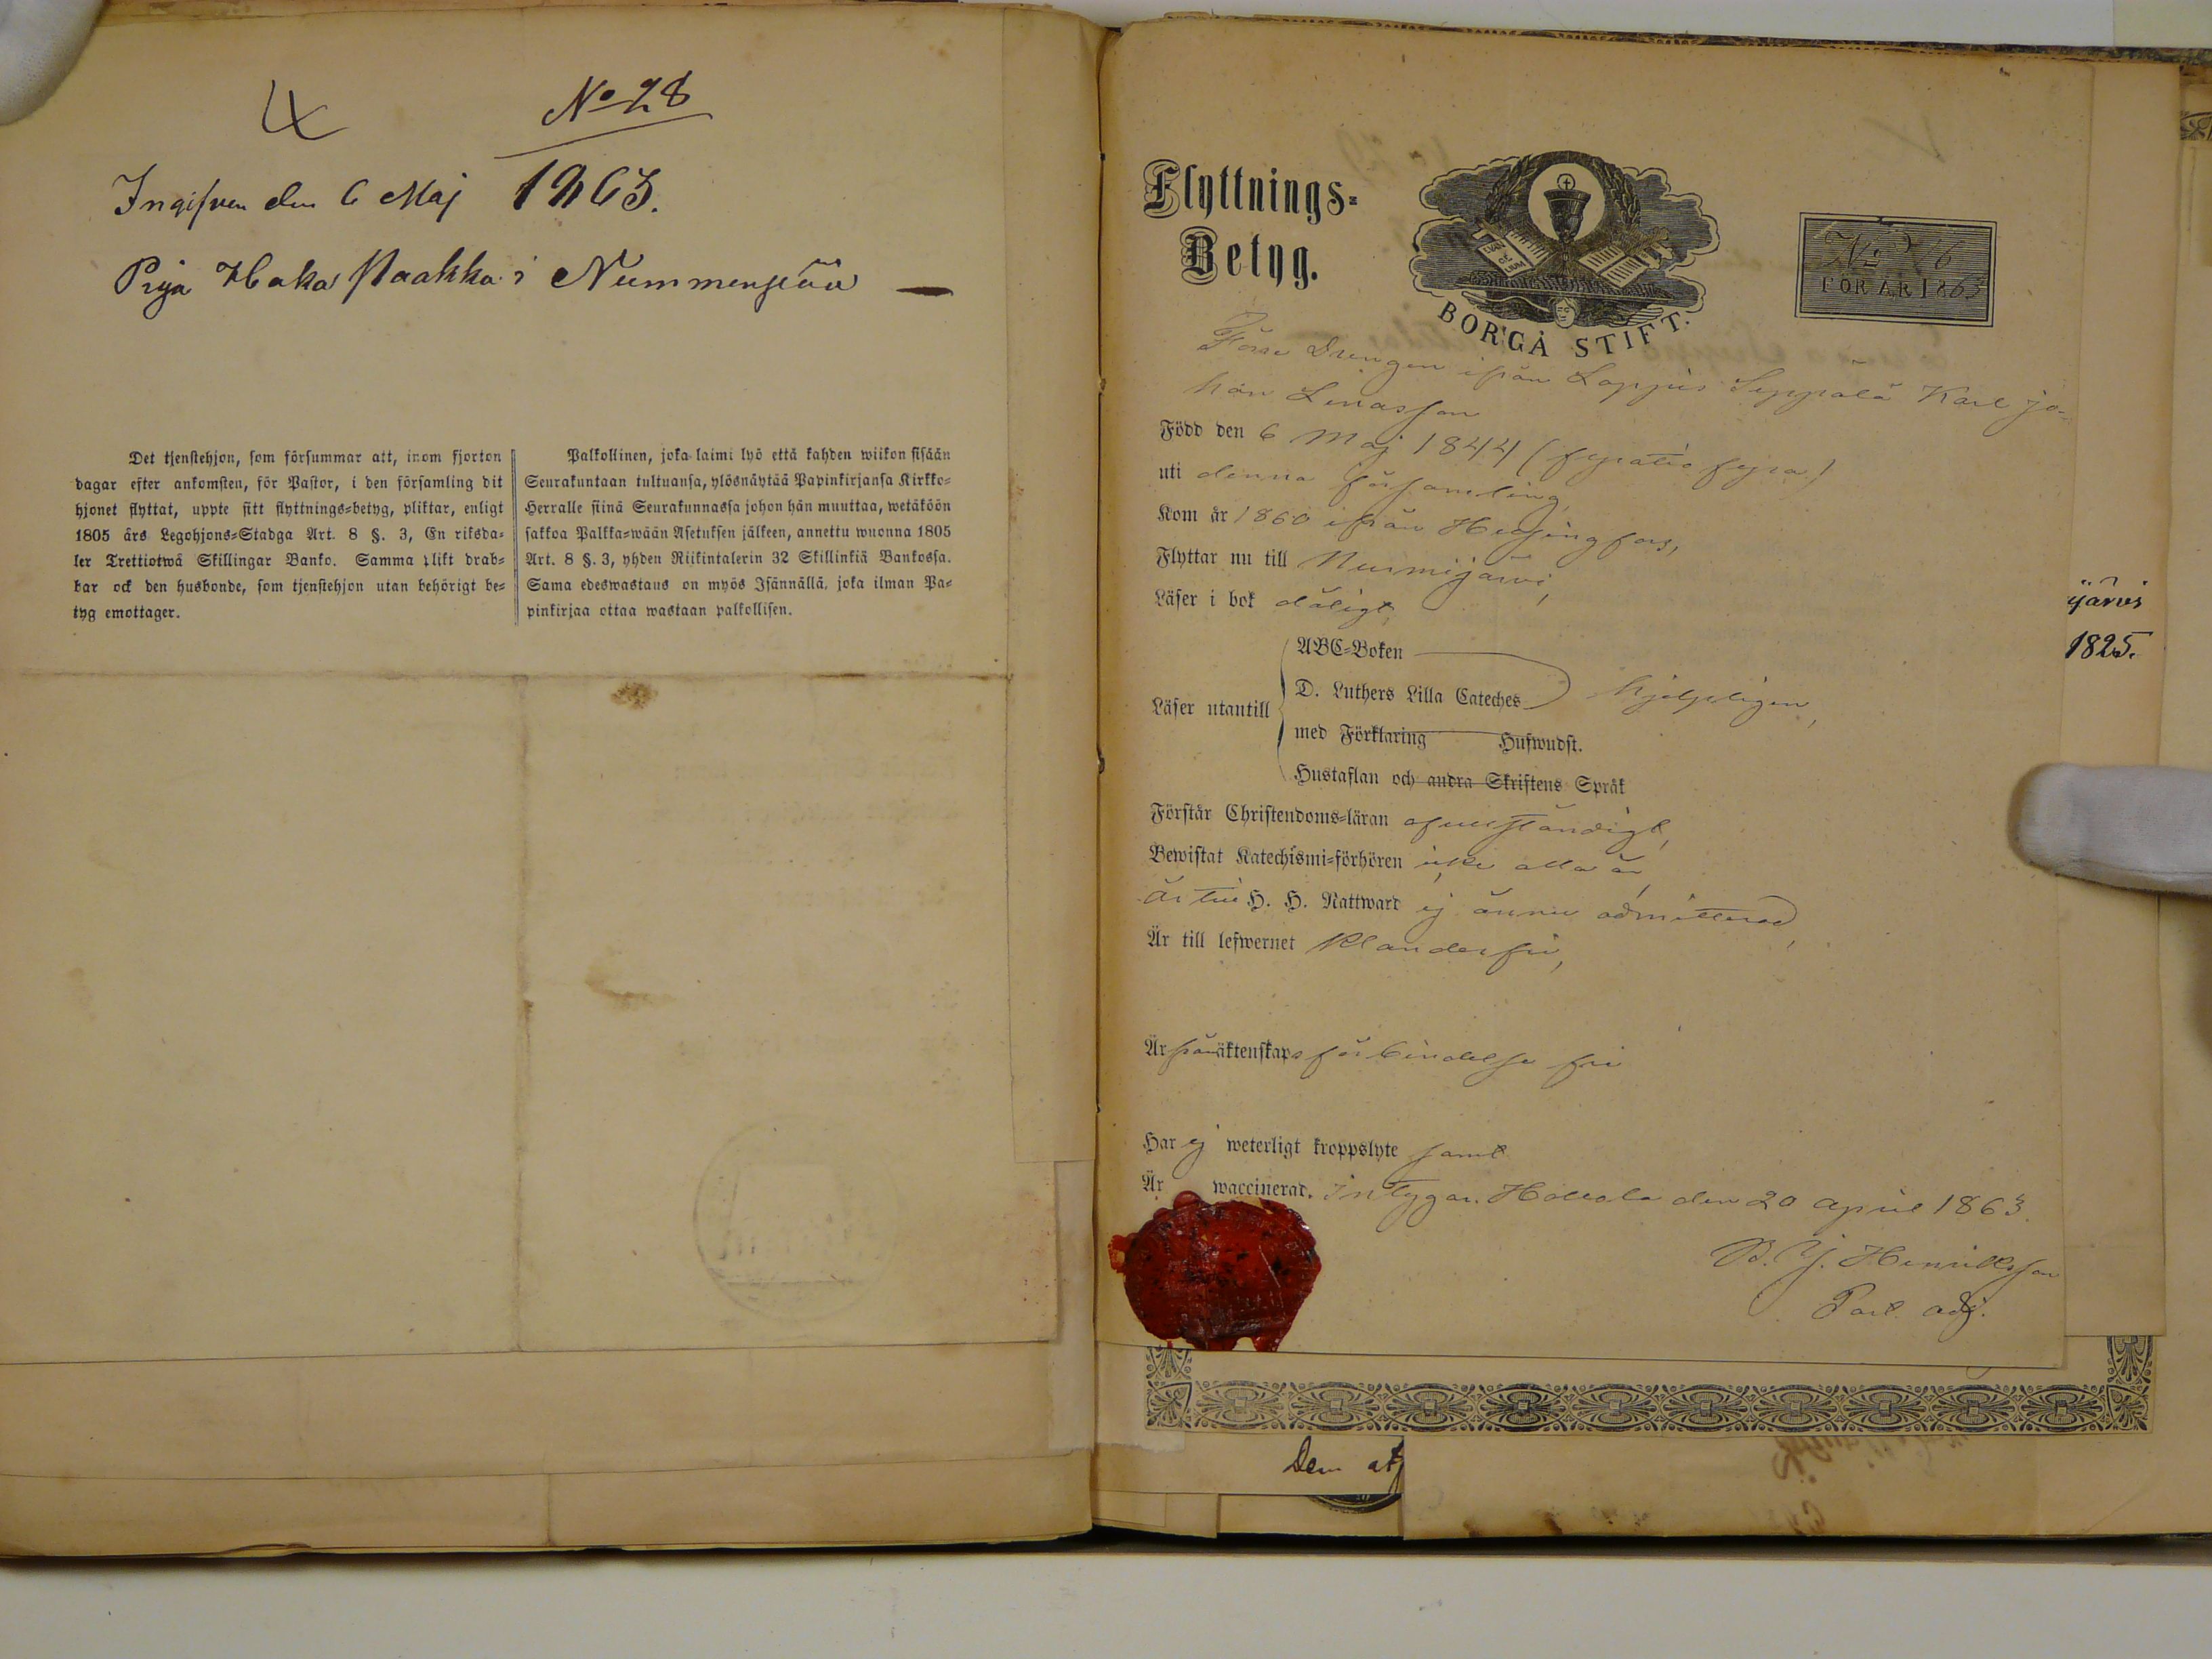 No 28
Ingifven den 6 Maj 1863.
Piga Maakka i Nummenpää
Det tjenstehjon, som försummar att, inom fjorton
dagar efter ankomsten, för Pastor, i den församling dit
hjonet flyttat, uppte sitt flyttnings=betyg, pliktar, enligt
1805 års Legohjons=Stadga Art. 8 §. 3, En riksda=
ler Trettiotwå Skillingar Banko. Samma plikt drab=
bar ock den husbonde, som tjenstehjon utan behörigt be=
tyg emottager.
Palkollinen, joka laimi lyö että kahden wiikon sisään
Seurakuntaan tultuansa, ylösnäytää Papinkirjansa Kirkko=
Herralle siinä Seurakunnassa johon hän muuttaa, wetäköön
sakkoa Palkka=wään Asetuksen jälkeen, annettu wuonna 1805
Art. 8 §. 3, yhden Riikintalerin 32 Skillinkiä Bankossa.
Sama edeswastaus on myös Isännällä, joka ilman Pa=
pinkirjaa ottaa wastaan palkollisen.
Flyttnings=
Betyg.
EVAN GE LIUM
BORGÅ STIFT.
FÖR ÅR 1863
Drengen ifrån Seppälä Karl Jo-
han Henasson
Född den 6 Maj 1844 (fyratio fyra)
uti denna församling,
Kom år 1860 ifrån Helsingfors,
Flyttar nu till Nurmijärvi,
Läser i bok dåligt,
Läser utantill
ABC=Boken
D. Luthers Lilla Cateches hjelpligen,
med Förklaring Hufwudst.
Hustaflan och andra Skriftens Språk
Förstår Christendoms=läran ofullständigt,
Bewistat Katechismi=förhören icke alla år,
är till H. H. Nattward ej ännu admitterad,
Är till lefwernet klanderfri,
Är från äktenskaps förbindelse fri
Har ej weterligt kroppslyte samt
Är waccinerad. Intygar. Hollola den 20 April 1863.
B. J. Henriksson
Past. adj.
ijärvi
1825.
Dem